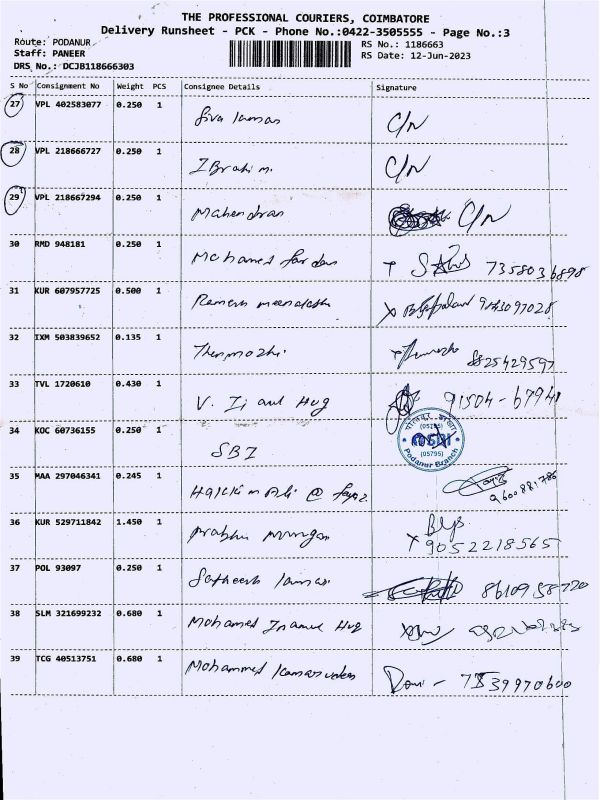 THE PROFESSIONAL COURIERS, COIMBATORE
Delivery Runsheet - PCK - Phone No.:0422-3505555 - Page No.:3
Route: PODANUR RS No.: 1186663
Staff: PANEER RS Date: 12-Jun-2023
DRS No.: DCJB118666303
S No Consignment No Weight PCS Consignee Details Signature
27 VPL 402583077 0.250 1
Siva C/N
28 VPL 218666727 0.250 1
IBrahim. C/N
29 VPL 218667294 0.250 1
Mahendran C/N
30 RMD 948181 0.250 1
Mohamed 7358036898
31 KUR 607957725 0.500 1
Ramesh
32 IXM 503839652 0.135 1
Thenmozhi 8825429597
33 TVL 1720610 0.430 1
V. Zi aul Huq 91504-67941
34 KOC 60736155 0.250 1
SBI
(05795)
Podanur Branch
(05795)
35 MAA 297046341 0.245 1
@ 9600881786
36 KUR 529711842 1.450 1
Prabhu Murugan 9052218565
37 POL 93097 0.250 1
Satheesh 8610958770
38 SLM 321699232 0.680 1
Mohamed Inamul Huq
39 TCG 40513751 0.680 1
Mohammed